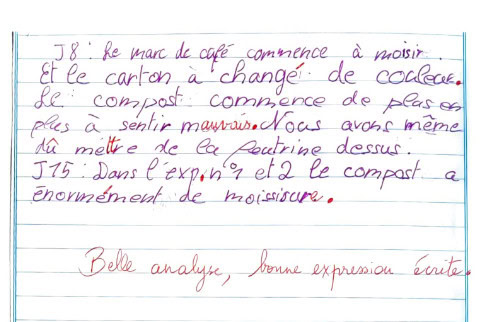 J8 : Le marc de café commence à moisir.
Et le carton à changé de couleur.
Le compost commence de plus en
plus à sentir mauvais. Nous avons même
dû mettre de la feutrine dessus.
J15 : Dans l'exp. n°1 et 2 le compost a
énormément de moississure.
Belle analyse, bonne expression écrite.